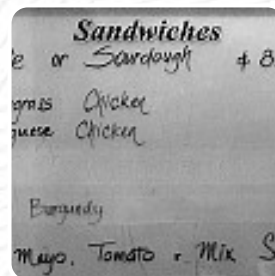 Sandwiches
or Sourdough $ 8
Chicken
Chicken
Burgundy
Mayo, Tomato Mix